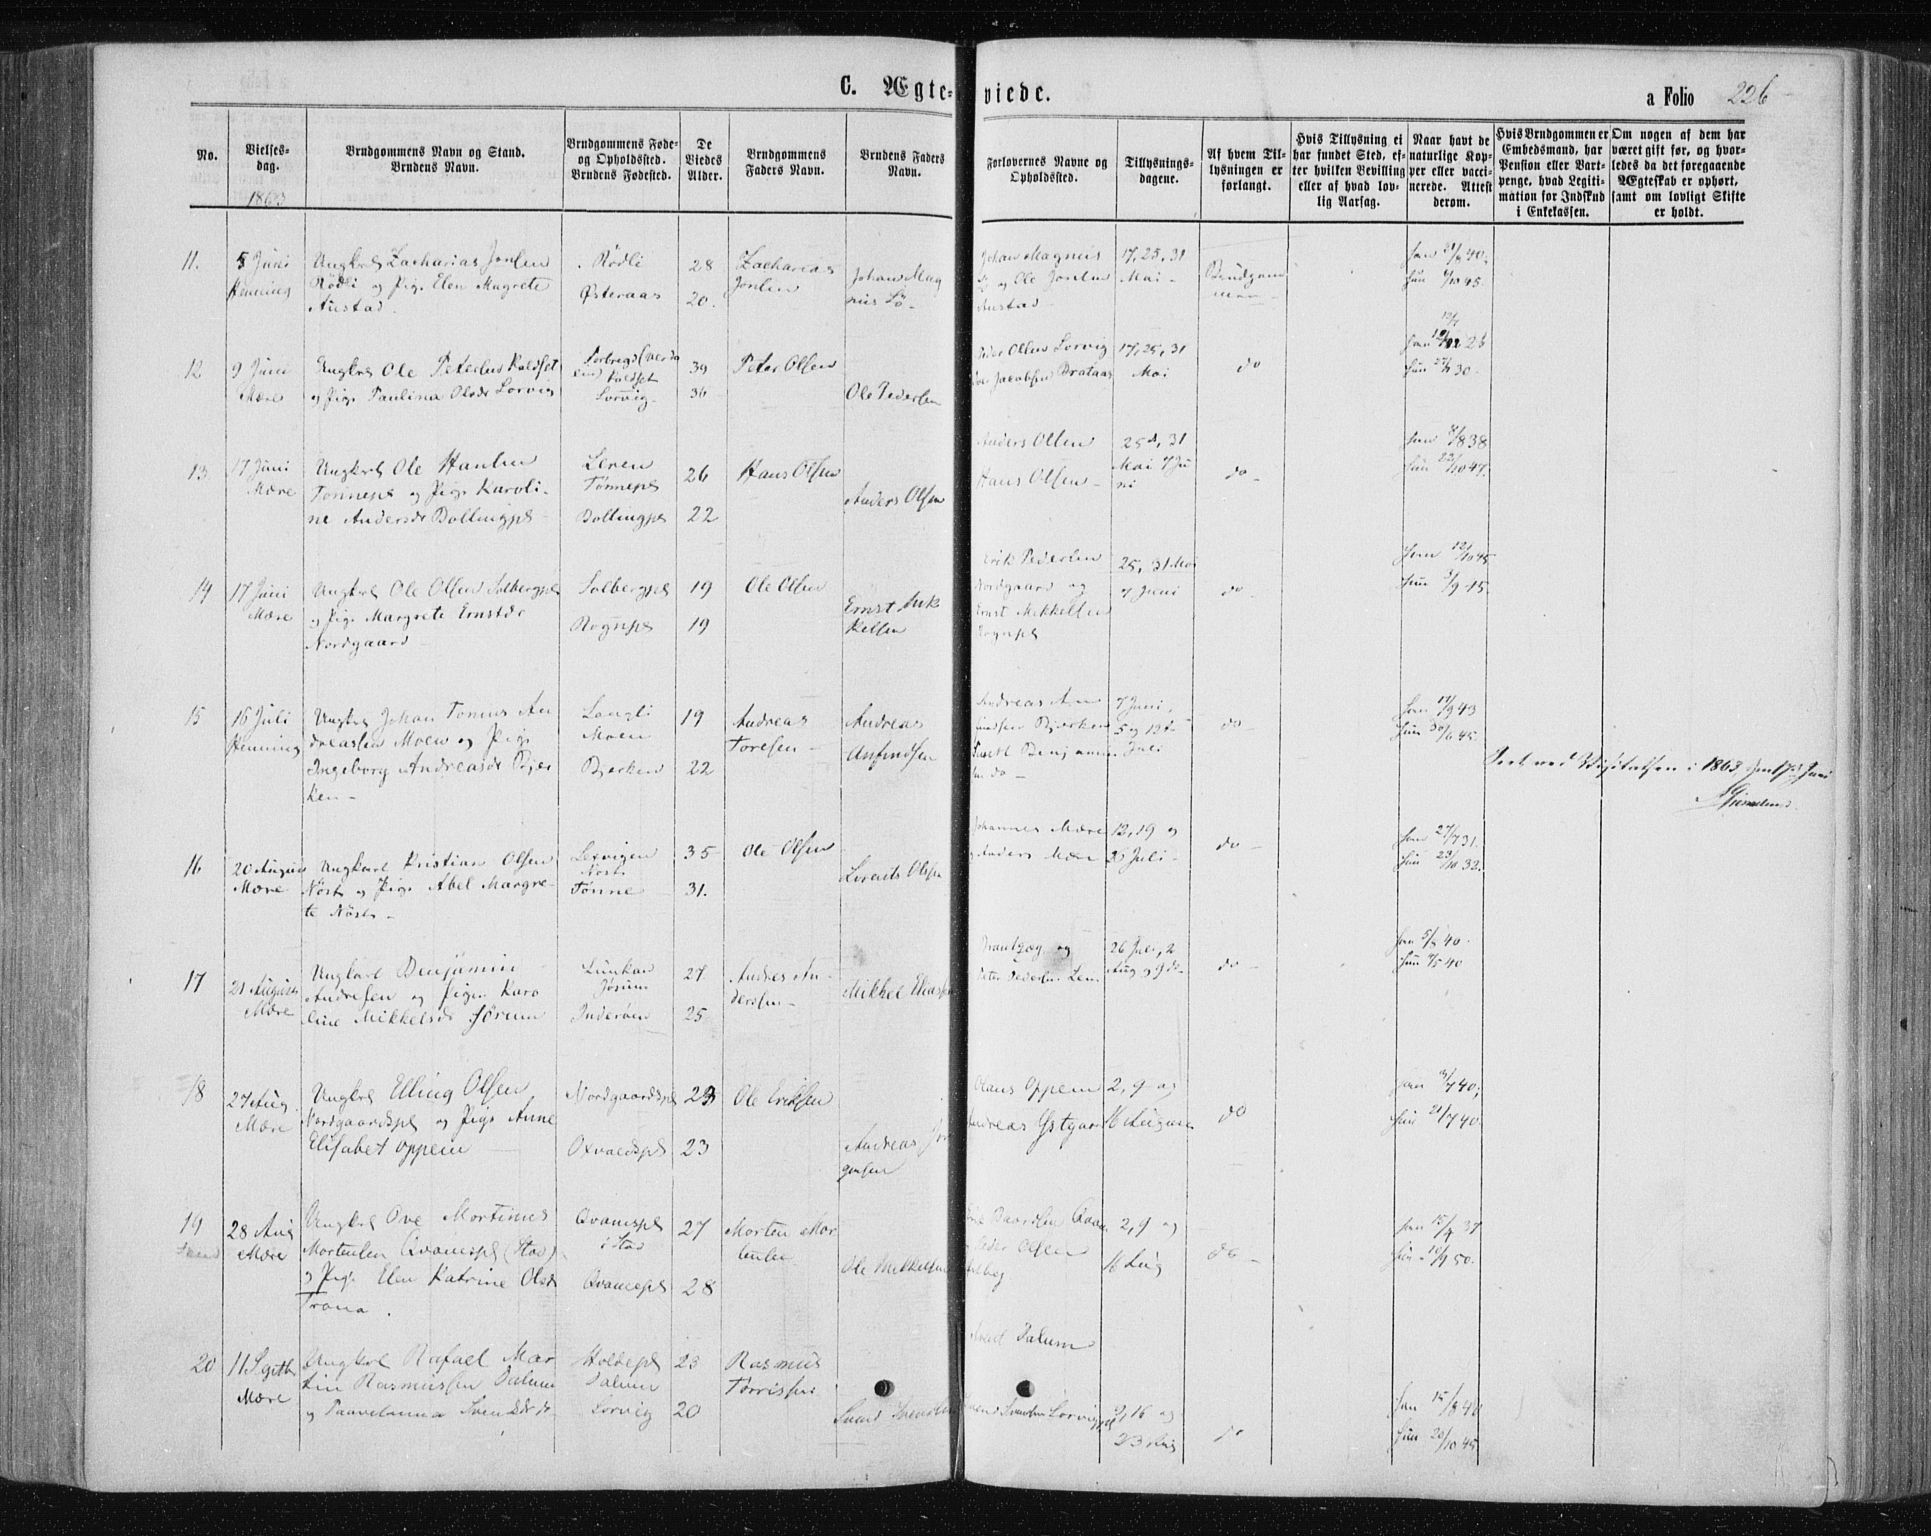 C. Ægteviede.
a Folio 226
No.
Vielsesdag.
Brudgommens Navn og Stand.
Brudens Navn.
Brudgommens Føde-
og Opholdssted.
Brudens Fødested.
De
Viedes
Alder.
Brudgommens
Faders Navn.
Brudens Faders
Navn.
Forlovernes Navne og
Opholdssted.
Tillysnings-
dagene.
Af hvem Til-
lysningen er
forlangt.
Hvis Tillysning ei
har fundet Sted, ef-
ter hvilken Bevilling
eller af hvad lov-
lig Aarsag.
Naar havt de
naturlige Kop-
per eller vacci-
nerede. Attest
derom.
Hvis Brudgommen er
Embedsmand, har
Pension eller Vart-
penge, hvad Legiti-
mation for Indskud
i Enkekassen.
Om nogen af dem har
været gift før, og hvor-
ledes da det foregaaende
Ægteskab er ophørt,
samt om lovligt Skifte
er holdt.
1863
11.
5 Juni
Henning
Ungkrl Zacharias Jonsen
Rødli og Pige Elen Magrete
Austad.
Rødli
Østeraas
28
20.
Zacharias
Jonsen
Johan Mag
nus
Johan Magnus
og Ole Jonsen
Austad
17, 25, 31
Mai
Brudgom
men
han 21/8 40.
hun 6/10 45.
12
9 Juni
Mære
Ungkrl Ole Petersen Koldset
og Pige Paulina Olsdr Lorvig
Koldset
Lorvig
39
36
Peter Olsen
Ole Pedersen
Peder Olsen Lorvig
Jacobsen Brataas
17, 25, 31
Mai
do
26
hun 30.
13
17 Juni
Mære
Ungkrl Ole Hansen
Tønnepl og Pige Karoli-
ne Andersdr Bollingpl
Leren
Tønnepl
Bollingpl
26
22
Hans Olsen
Anders Olsen
Anders Olsen
Hans Olsen
25d, 31
Mai 7 Ju
ni
do
han 38
hun 22/10 47.
14
17 Juni
Mære
Ungkrl Ole Olsen Solbergpl
og Pige Margrete Ernstdr
Nordgaard
Solbergpl
Rognpl
19
19
Ole Olsen
Ernst Mik
kelsen
Erik Pedersen
Nordgaard og
Ernst Mikkelsen
Rognpl
25, 31 Mai
7 Juni
do
han 12/10 45
hun 9 45.
15
16 Juli
Henning
Ungkrl Johan Tomas An
dreassen Moen og Pige
Ingeborg Andreasdr Bjer
ken
Langli
Moen
Bjerken
19
22
Andreas
Toresen
Andreas
Amundsen
Andreas Am
undsen Bjerken
7 Juni,
5 og 12te
Juli
do
han 17/9 43
hun 30/6 45.
Seet ved Visitatsen i 1863 den 17d Juni
16
20 August
Mære
Ungkarl Kristian Olsen
Nøst og Pige Abel Margre-
te Nøst
Lexvigen
Nøst
Tønne
35
31.
Ole Olsen
Lorents Olsen
Johannes Mære
og Anders Mære
12, 19 og
26 Juli
do
han 27/7 31.
hun 23/10 32.
17
21 August
Mære
Ungkarl Benjamin
Andresen og Pige Karo
line Mikkelsdr Jørum
Jørum
Inderøen
27
25
Andreas An-
dersen
Mikkel Eliassen
og
Peter Pedersen
26 Juli, 2
Aug og 9 do
do
han 5/8 40
hun 7/5 40
18
27 Aug.
Mære
Ungkrl Elling Olsen
Nordgaardspl og Pige Anne
Elisabet Oppem
Nordgaardspl
Oxvaldspl
23
23
Ole Eriksen
Andreas Jør
gensen
Olaus Oppem
Andreas Ystgaar
2, 9 og
16 August
do
han 3/7 40,
hun 21/7 40.
19
28 Aug
Mære
Ungkrl Ove Mortinus
Mortensen Qvamspl (Stod)
og Pige Elen Katrine Olsdr
Trona.
Qvamspl
i Stod
Qvamspl
27
28
Morten Mor
tensen
Ole Mikkelsen
Baardsen Qvam
og Peder Olsen
2, 9 og
16 Aug
do
han 15/4 37
hun 10/9 50.
20
11 Septb
Mære
Ungkrl Rafael Mar
tin Rasmussen Dalum
og Paavelanna Svendsdr do
Holdepl
Dalum
Lorvig
23
20
Rasmus
Tørrissen
Svend Svendsen
Dalum
Svend Svendsen Lorvigpl
9, 16 og
23 Aug
do
han 15/8 40
hun 20/10 45.